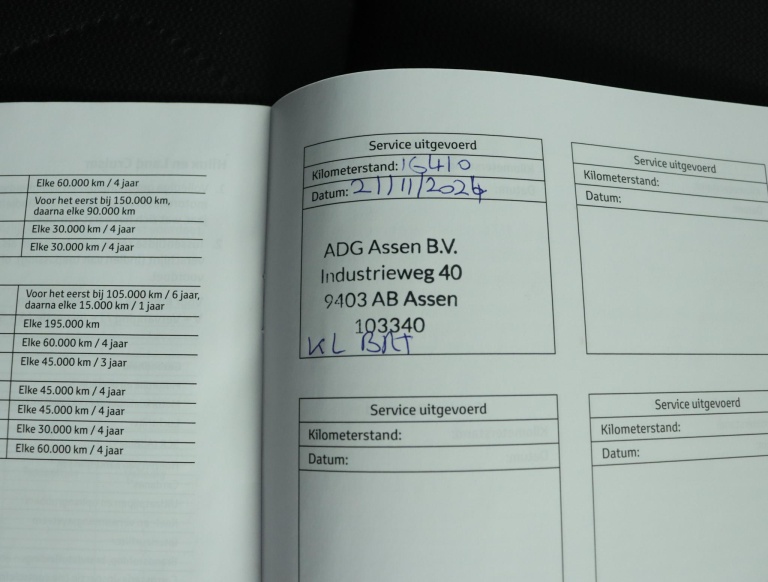 Elke 60.000 km / 4 jaar
Voor het eerst bij 150.000 km,
daarna elke 90.000 km
Elke 30.000 km / 4 jaar
Elke 30.000 km / 4 jaar
Voor het eerst bij 105.000 km / 6 jaar,
daarna elke 15.000 km / 1 jaar
Elke 195.000 km
Elke 60.000 km / 4 jaar
Elke 45.000 km / 3 jaar
Elke 45.000 km / 4 jaar
Elke 45.000 km / 4 jaar
Elke 30.000 km / 4 jaar
Elke 60.000 km / 4 jaar
Service uitgevoerd
Kilometerstand: 16410
Datum: 21/11/2024
ADG Assen B.V.
Industrieweg 40
9403 AB Assen
103340
KL
Service uitgevoerd
Kilometerstand:
Datum:
Service uitgevoerd
Kilometerstand:
Datum:
Service uitgevoerd
Kilometerstand:
Datum: